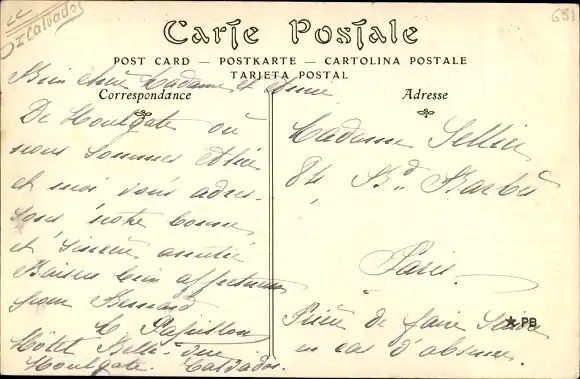 Calvados
681
Carte Postale
POST CARD — POSTKARTE — CARTOLINA POSTALE
TARJETA POSTAL
Correspondance
Adresse
Bien chère Madame et Amie
De Houlgate où
nous sommes
et moi vous adres-
sons notre bonne
et sincère amitié
Baisers bien affectueux
pour Bernard
C. Papillon
Hôtel Belle-Vue
Houlgate. Calvados.
Madame Sellier
84, Bd Barbès
Paris.
Prière de faire suivre
en cas d'absence.
★ PB